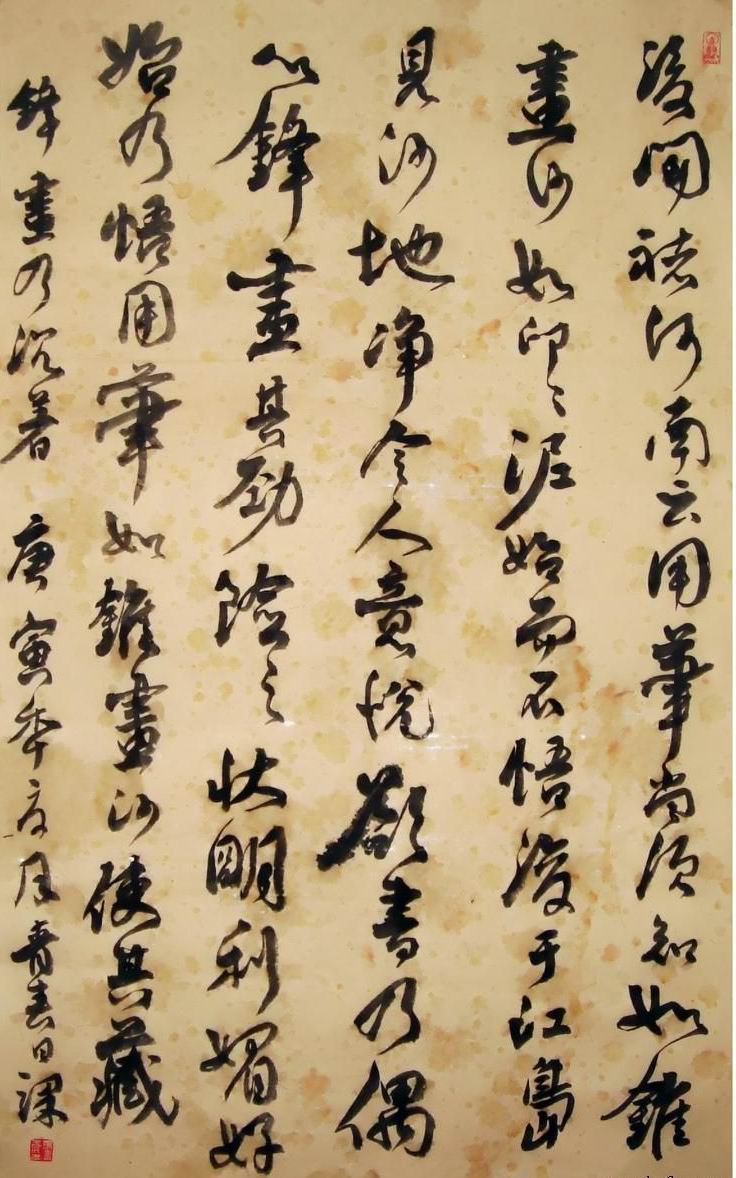 後聞褚河南云用筆尚須知如錐
畫沙如印印泥始而不悟後于江島
見沙地净令人意悅欲書乃偶
以鋒畫其勁險之狀明利媚好
始乃悟用筆如錐畫沙使其藏
鋒畫乃沉着 庚寅年 月青春日